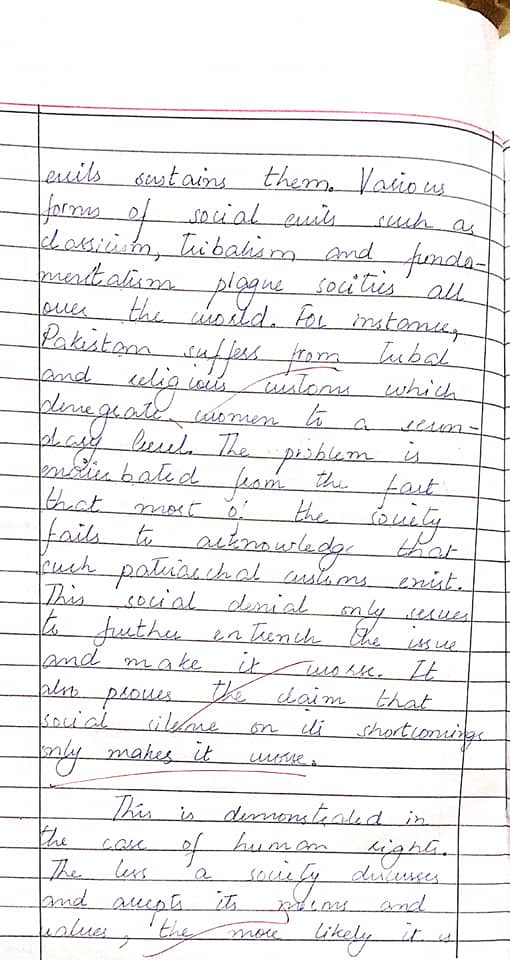 evils sustains them. Various
forms of social evils such as
classicism, Tribalism and funda-
mentalism plague socities all
over the world. For instance,
Pakistan suffers from Tribal
and religious customs which
denegrate women to a secon-
dary level. The problem is
exacerbated from the fact
that most of the society
fails to acknowledge that
such patriarchal customs exist.
This social denial only serves
to further entrench the issue
and make it worse. It
also proves the claim that
social silence on its shortcomings
only makes it worse.
This is demonstrated in
the case of human rights.
The less a society discusses
and accepts its norms and
values, the more likely it is